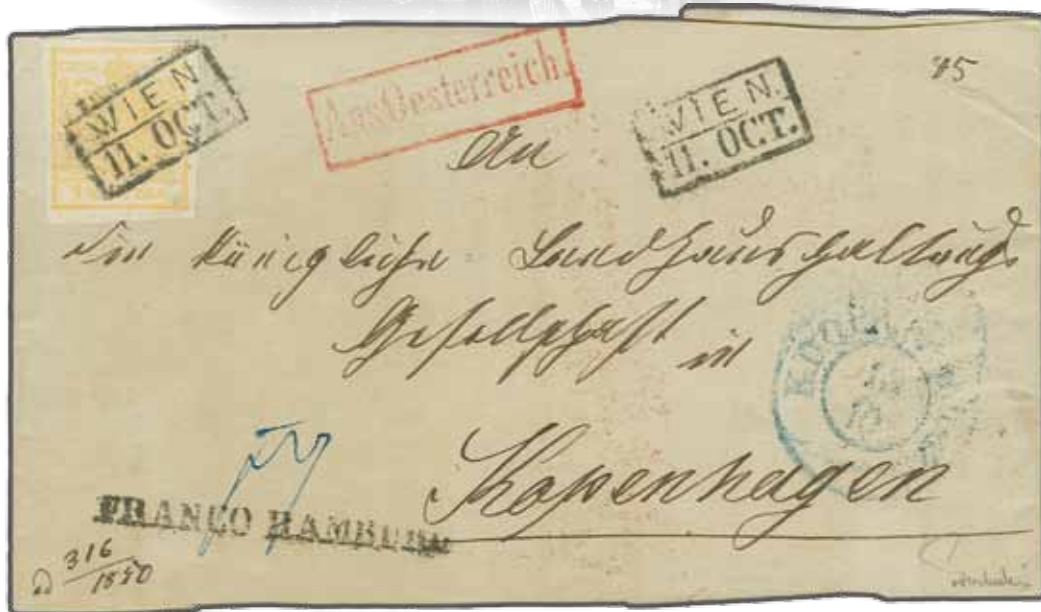 WIEN
11. OCT.
Aus Oesterreich.
WIEN.
11. OCT.
45
An
die Königliche Landhaushaltungs
Gesellschaft in
Kopenhagen
FRANCO HAMBURG
316
1850